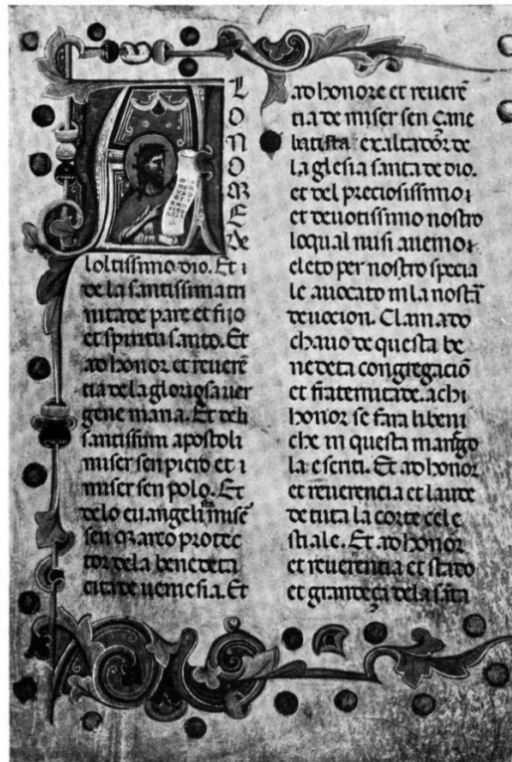 A
L
O
N
O
M
E
De
loltissimo dio. Et i
de la santissima tri
nita de pare et fiio
et spiritu santo. Et
ad honor et reuerē
cia de la gloriosa uer
gene maria. Et deli
santissimi apostoli
miser sen piero et i
miser sen polo. Et
delo euangelista misē
sen marco protec
tor dela benedeta
cita de uenesia. Et
ad honore et reuerē
tia de miser sen çane
batista exaltador de
la glesia santa de dio.
et del preciosissimo i
et deuotissimo nostro
loqual nui auemo i
eleto per nostro specia
le auocato in la nostrā
deuocion. Clamado
chauo de questa be
nedeta congregaciō
et fraternitade. a chi
honor se fara li beni
che in questa mariego
la escriti. Et ad honor
et reuerencia et laude
de tuta la corte cele
stiale. Et ad honor
et reuerentia et stado
et grandeça dela santa